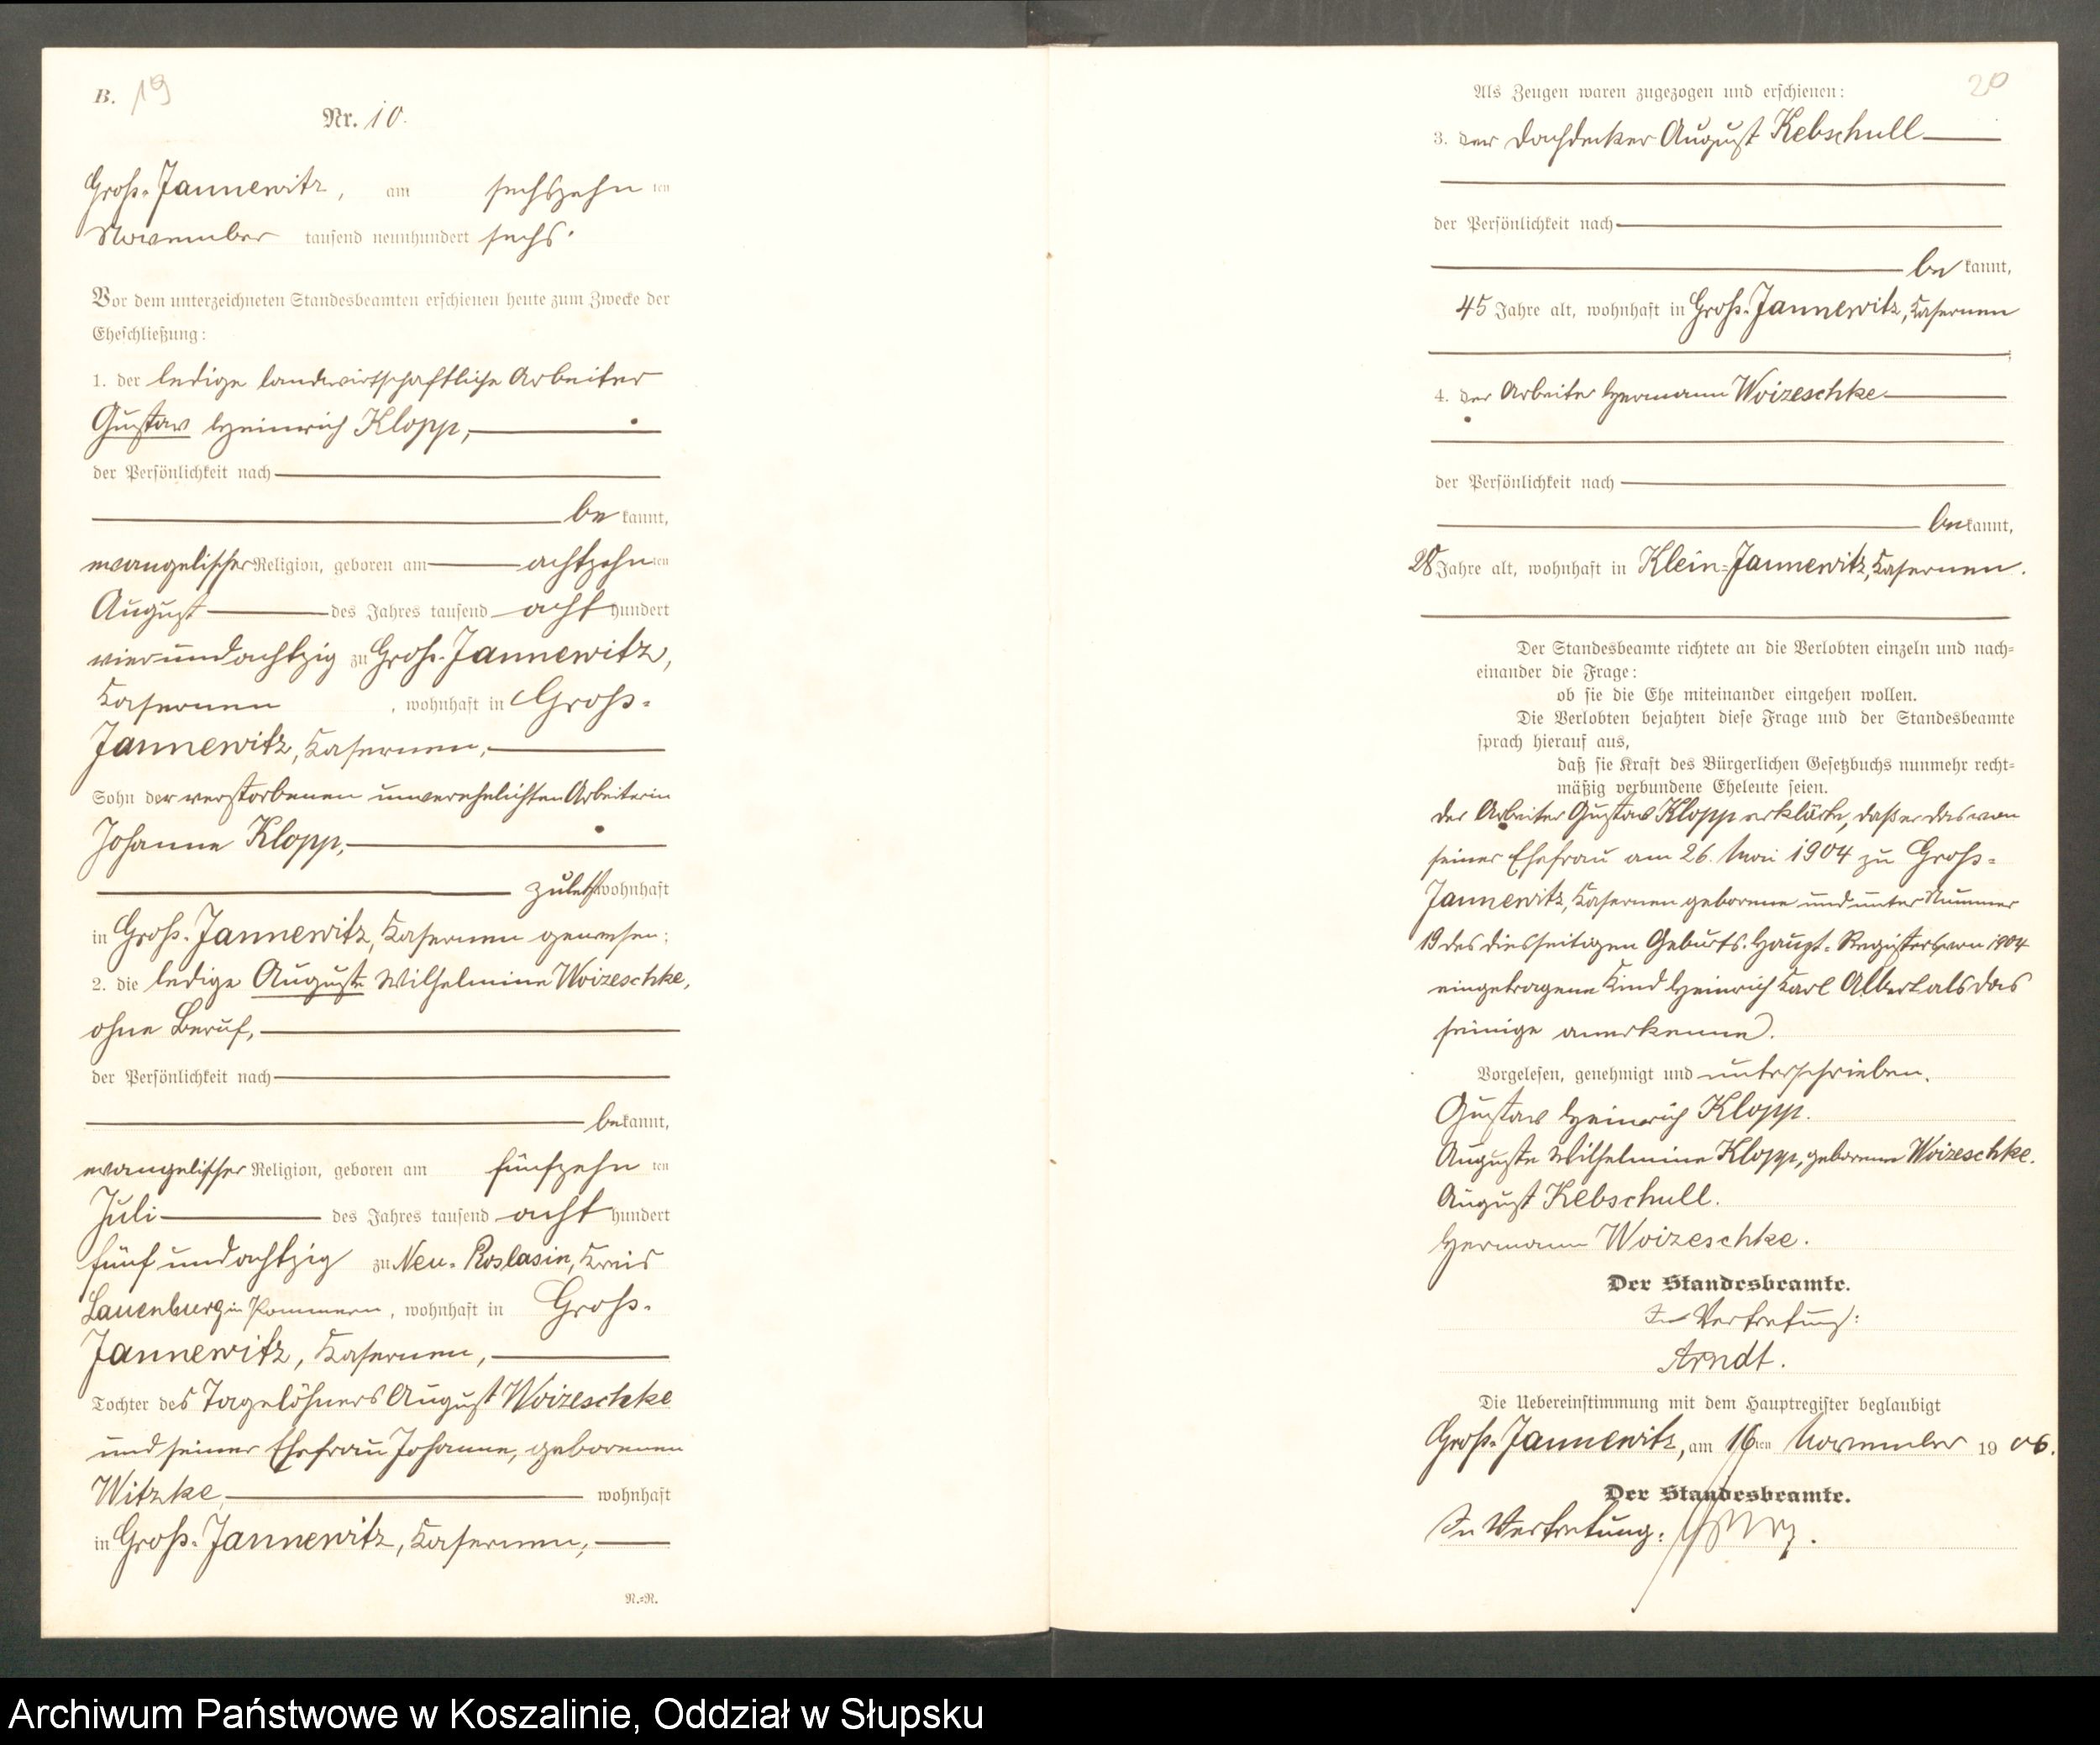 B. 19
Nr. 10.
Groß-Jannewitz, am sechszehn ten
November tausend neunhundert sechs.
Vor dem unterzeichneten Standesbeamten erschienen heute zum Zwecke der
Eheschließung:
1. der ledige landwirtschaftliche Arbeiter
Gustav Heinrich Klopp,
der Persönlichkeit nach
be kannt,
evangelischer Religion, geboren am achtzehn ten
August des Jahres tausend acht hundert
vierundachtzig zu Groß-Jannewitz,
Kasernen, wohnhaft in Groß-
Jannewitz, Kasernen,
Sohn der verstorbenen unverehelichten Arbeiterin
Johanne Klopp,
zuletzt wohnhaft
in Groß-Jannewitz, Kasernen gewesen;
2. die ledige Auguste Wilhelmine Woizeschke,
ohne Beruf,
der Persönlichkeit nach
be kannt,
evangelischer Religion, geboren am fünfzehn ten
Juli des Jahres tausend acht hundert
fünfundachtzig zu Neu-Roslasin, Kreis
Lauenburg in Pommern, wohnhaft in Groß-
Jannewitz, Kasernen,
Tochter des Tagelöhners August Woizeschke
und seiner Ehefrau Johanne, geborenen
Witzke, wohnhaft
in Groß-Jannewitz, Kasernen;
N.=N.
20
Als Zeugen waren zugezogen und erschienen:
3. der Dachdecker August Kebschull
der Persönlichkeit nach
be kannt,
45 Jahre alt, wohnhaft in Groß-Jannewitz, Kasernen
;
4. der Arbeiter Hermann Woizeschke
der Persönlichkeit nach
be kannt,
28 Jahre alt, wohnhaft in Klein-Jannewitz, Kasernen.
Der Standesbeamte richtete an die Verlobten einzeln und nach=
einander die Frage:
ob sie die Ehe miteinander eingehen wollen.
Die Verlobten bejahten diese Frage und der Standesbeamte
sprach hierauf aus,
daß sie Kraft des Bürgerlichen Gesetzbuchs nunmehr recht=
mäßig verbundene Eheleute seien.
Der Arbeiter Gustav Klopp erklärte, daß er das von
seiner Ehefrau am 26. Mai 1904 zu Groß-
Jannewitz, Kasernen geborene und unter Nummer
19 des diesseitigen Geburts-Haupt-Registers von 1904
eingetragene Kind Heinrich Karl Albert als das
seinige anerkenne.
Vorgelesen, genehmigt und unterschrieben.
Gustav Heinrich Klopp.
Auguste Wilhelmine Klopp, geborene Woizeschke.
August Kebschull.
Hermann Woizeschke.
Der Standesbeamte.
In Vertretung:
Arndt.
Die Uebereinstimmung mit dem Hauptregister beglaubigt
Groß-Jannewitz, am 16 ten November 19 06.
Der Standesbeamte.
In Vertretung:
Archiwum Państwowe w Koszalinie, Oddział w Słupsku